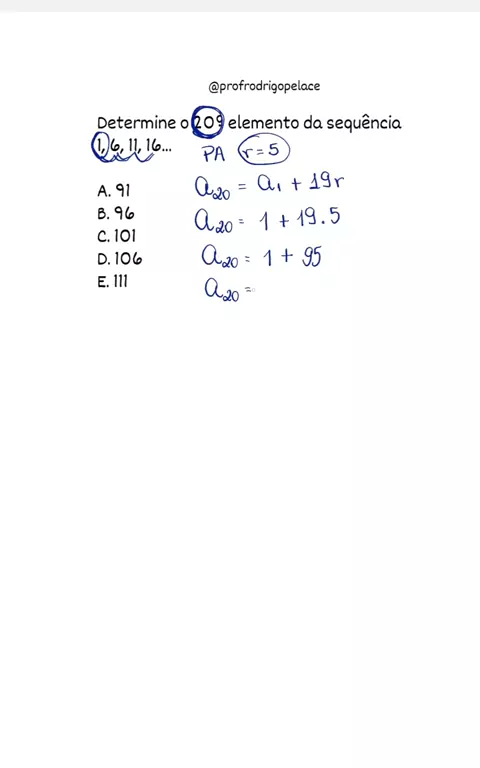 @profrodrigopelace
Determine o 20º elemento da sequência
1, 6, 11, 16... PA r = 5
A. 91
B. 96
C. 101
D. 106
E. 111
a₂₀ = a₁ + 19r
a₂₀ = 1 + 19.5
a₂₀ = 1 + 95
a₂₀ =